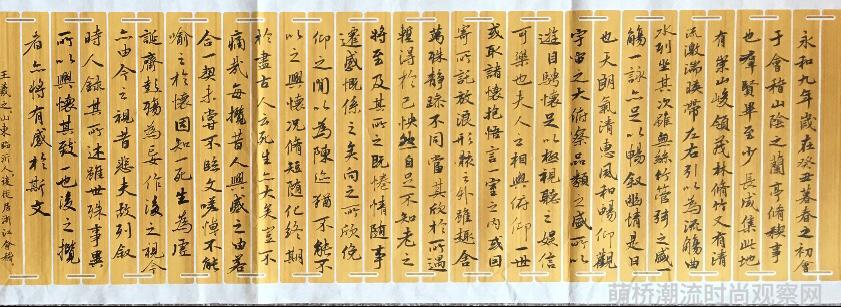 永和九年歲在癸丑暮春之初會
于會稽山陰之蘭亭脩稧事
也群賢畢至少長咸集此地
有崇山峻領茂林脩竹又有清
流激湍暎帶左右引以為流觴曲
水列坐其次雖無絲竹管弦之盛一
觴一詠亦足以暢敘幽情是日
也天朗氣清惠風和暢仰觀
宇宙之大俯察品類之盛所以
遊目騁懷足以極視聽之娛信
可樂也夫人之相與俯仰一世
或取諸懷抱悟言一室之內或因
寄所託放浪形骸之外雖趣舍
萬殊靜躁不同當其欣於所遇
暫得於己快然自足不知老之
將至及其所之既惓情隨事
遷感慨係之矣向之所欣俛
仰之間以為陳迹猶不能不
以之興懷況脩短隨化終期
於盡古人云死生亦大矣豈不
痛哉每攬昔人興感之由若
合一契未嘗不臨文嗟悼不能
喻之於懷固知一死生為虛
誕齊彭殤為妄作後之視今
亦由今之視昔悲夫故列敘
時人錄其所述雖世殊事異
所以興懷其致一也後之攬
者亦將有感於斯文
王羲之山東臨沂人後徙居浙江會稽
萌桥潮流时尚观察网